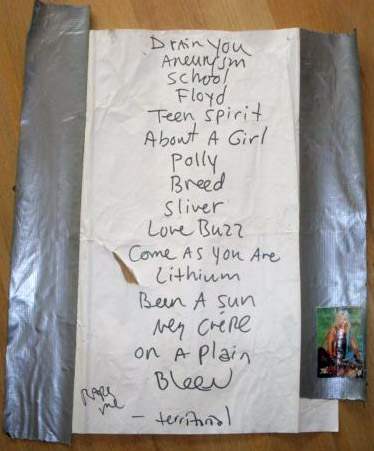 Drain You
Aneurysm
School
Floyd
Teen Spirit
About A Girl
Polly
Breed
Sliver
Love Buzz
Come As You Are
Lithium
Been A Sun
Neg Crépe
On A Plain
Bleew
Rape
me
- territorial